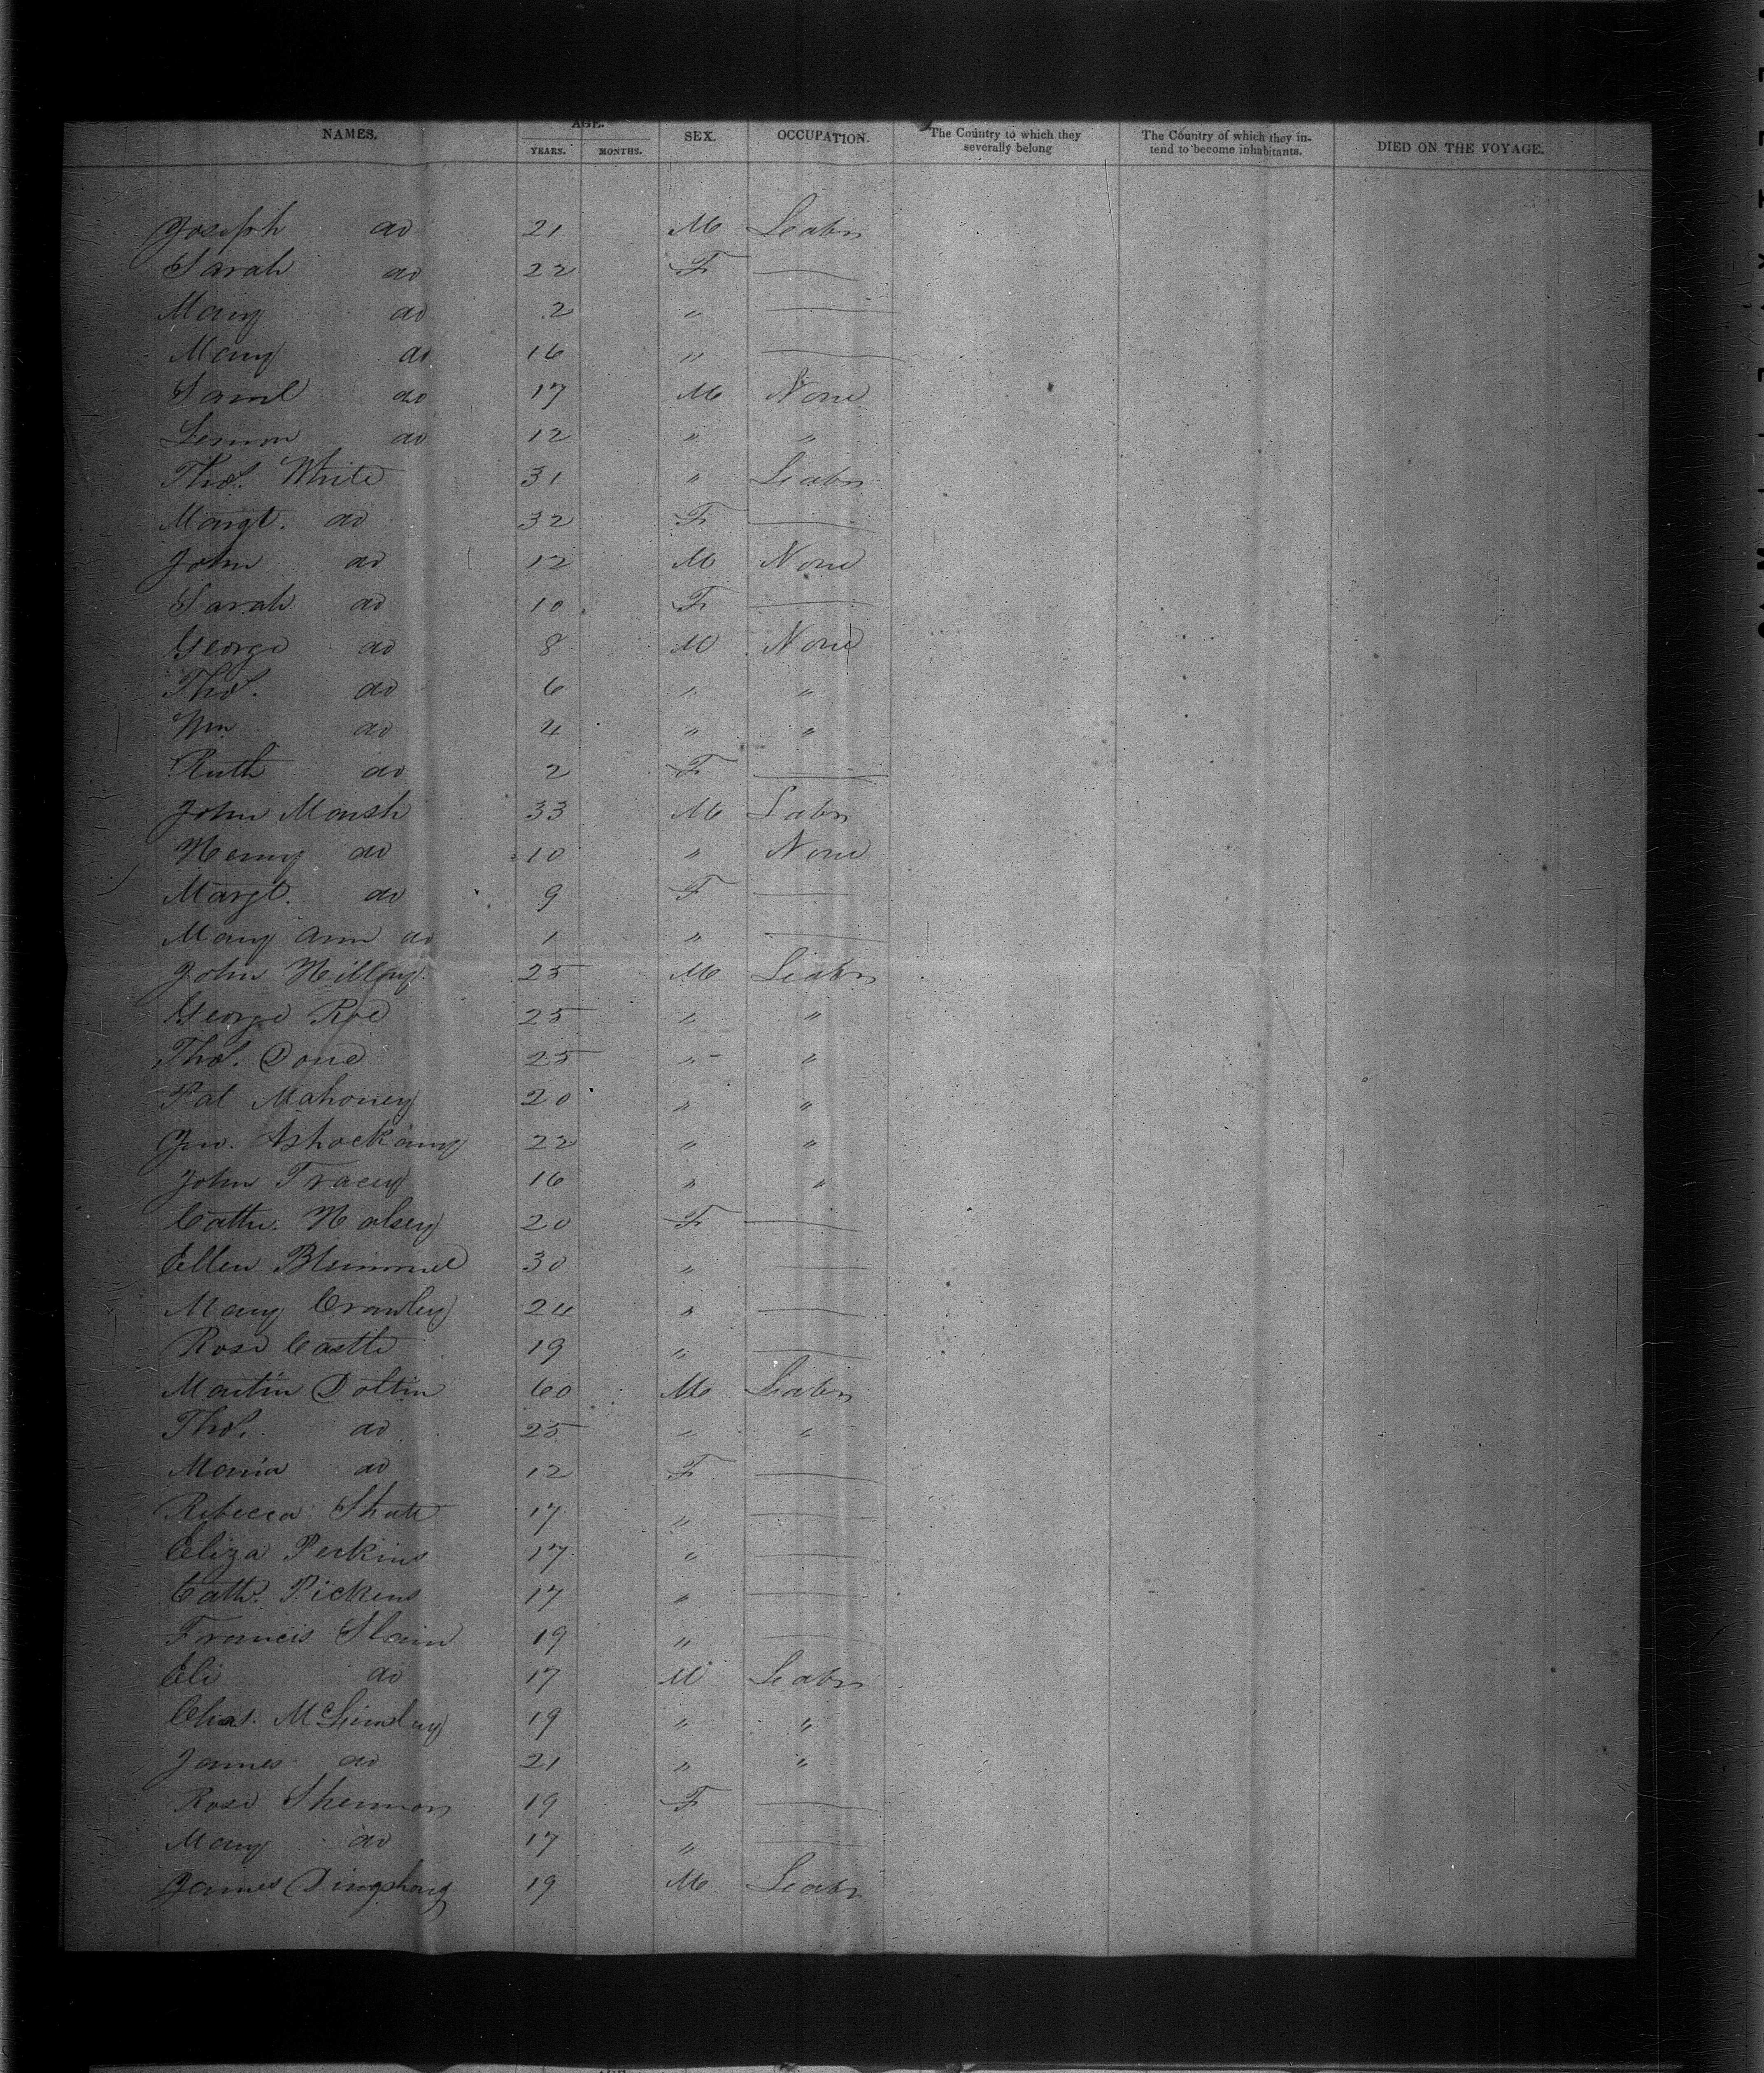 NAMES. AGE. YEARS. MONTHS. SEX. OCCUPATION. The Country to which they severally belong The Country of which they intend to become inhabitants. DIED ON THE VOYAGE.
Joseph do 21 M Labr
Sarah do 22 F —
Mary do 2 " —
Mary do 16 " —
Saml do 17 M None
do 12 " "
Thos. White 31 " Labr
Margt. do 32 F —
John do 12 M None
Sarah do 10 F —
George do 8 M None
Thos. do 6 " "
Wm do 4 " "
Ruth do 2 F —
John Marsh 33 M Labr
Henry do 10 " None
Margt. do 9 F —
Mary Ann do 1 " —
John 25 M Labr
George Roe 25 " "
Thos. 25 " "
Pat Mahoney 20 " "
Jno. 22 " "
John Tracey 16 " "
Cath. Halsey 20 F —
Ellen 30 " —
Mary Crawley 24 " —
Rose Castle 19 " —
Martin Doltin 60 M Labr
Thos. do 25 " "
Maria do 12 F —
Rebecca 17 " —
Eliza Perkins 17 " —
Cath. Pickens 17 " —
Francis Slain 19 " —
Eli do 17 M Labr
Chas. 19 " "
James do 21 " "
Rose Shennon 19 F —
Mary do 17 " —
James 19 M Labr